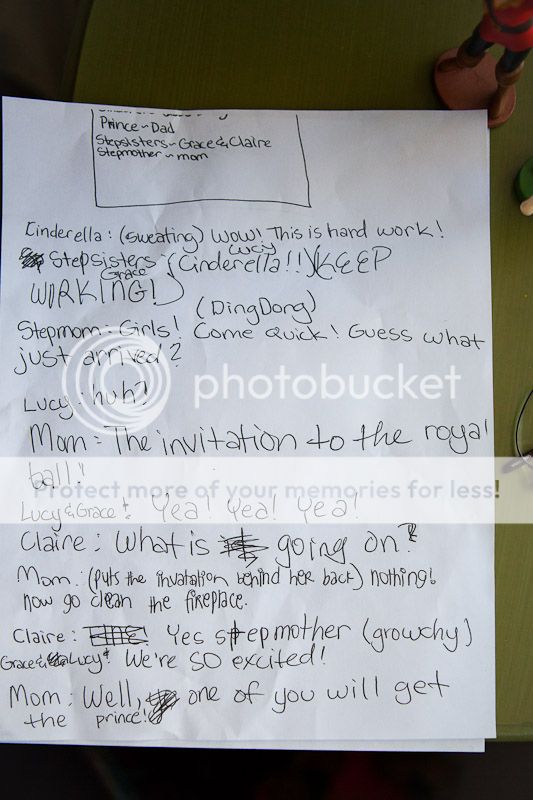 Prince ~ Dad
Stepsisters ~ Grace & Claire
Stepmother ~ mom
Cinderella: (sweating) Wow! This is hard work!
Lucy
Stepsisters: (Cinderella!!) (KEEP
Grace
WORKING!)
(DingDong)
Stepmom: Girls! Come quick! Guess what
just arrived?
Lucy: huh?
Mom: The invitation to the royal
ball!
Lucy & Grace: Yea! Yea! Yea!
Claire: What is going on?
Mom: (puts the invatation behind her back) nothing!
now go clean the fireplace.
Claire: Yes stepmother (growchy)
Grace & Lucy: We're SO excited!
Mom: Well, one of you will get
the prince!
photobucket
Protect more of your memories for less!